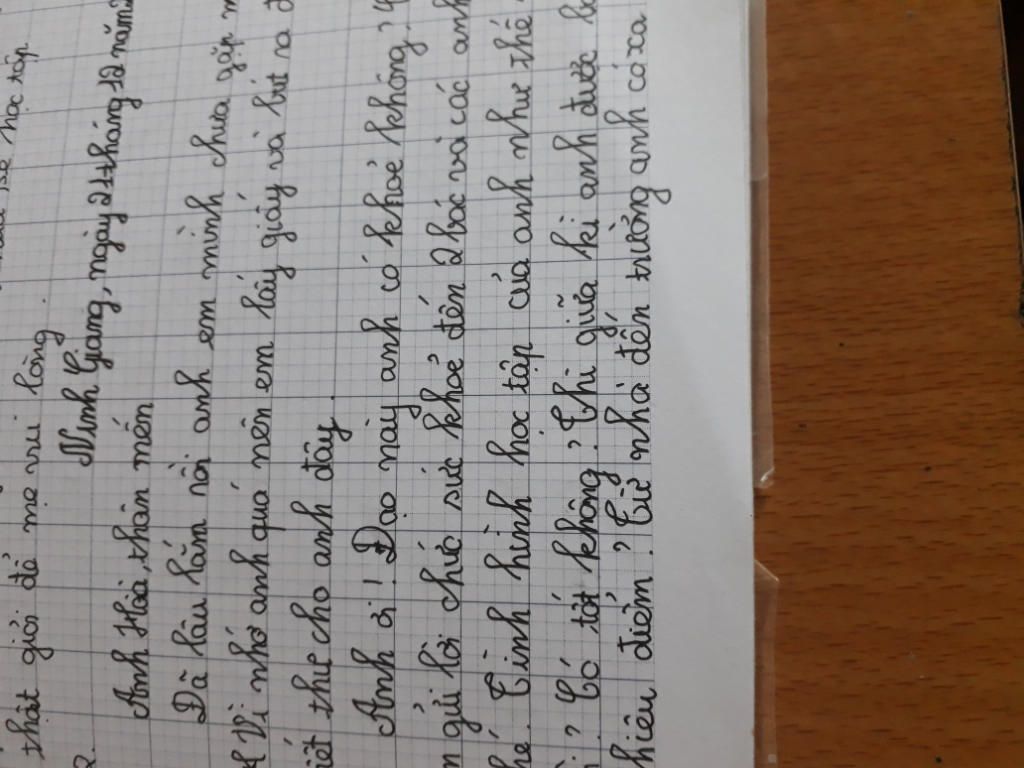 học tập
thật giỏi để mẹ vui lòng.
2.
Ninh Giang, ngày 27 tháng 12 năm
Anh Hòa, thân mến
Đã lâu lắm rồi anh em mình chưa gặp
Vì nhớ anh quá nên em lấy giấy và bút ra
iết thư cho anh đây.
Anh ơi! Đạo này anh có khoẻ không?
m gửi lời chúc sức khoẻ đến 2 bác và các anh
hé. Tình hình học tập của anh như thế
? Có tốt không? Thi giữa kì anh được
hiêu điểm? Từ nhà đến trường anh có xa